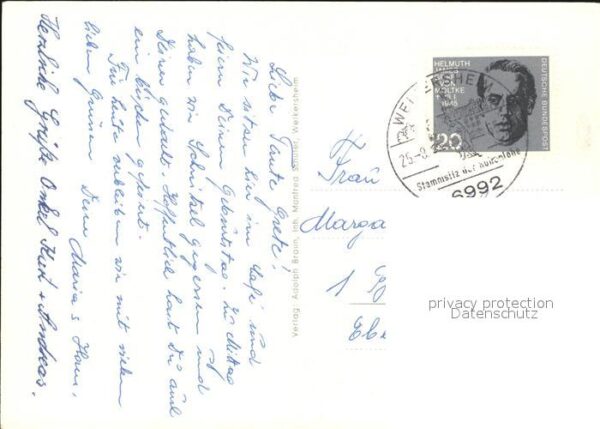 Liebe Tante Grete!
Wir sitzen hier im Café und
feiern Deinen Geburtstag. Zu Mittag
haben wir Schnitzel gegessen und
Deiner gedacht. Hoffentlich hast Du auch
ein bißchen gefeiert.
Für heute verbleiben wir mit vielen
lieben Grüssen Deine Maria & Hans,
Herzliche Grüße Onkel Kurt + Andreas.
Verlag: Adolph Braun, Inh. Manfred Schuler, Weikersheim
HELMUTH
JAMES
GRAF
MOLTKE
1945
20
DEUTSCHE BUNDESPOST
Stammsitz der Hohenlohe
6992
Frau
Marga
1
privacy protection
Datenschutz